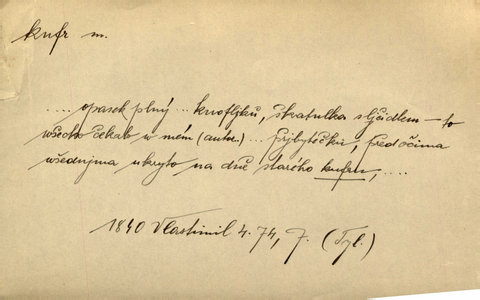 kufr m.
.... opasek plný ... knoflíků, škatulka s líčidlem – to
wšecko čekalo w mém (autor.) ... příbytečku, před očima
wšednjma ukryto na dně starého kufru, ....
1840 Vlastimil 4. 74, J. (Tyl.)